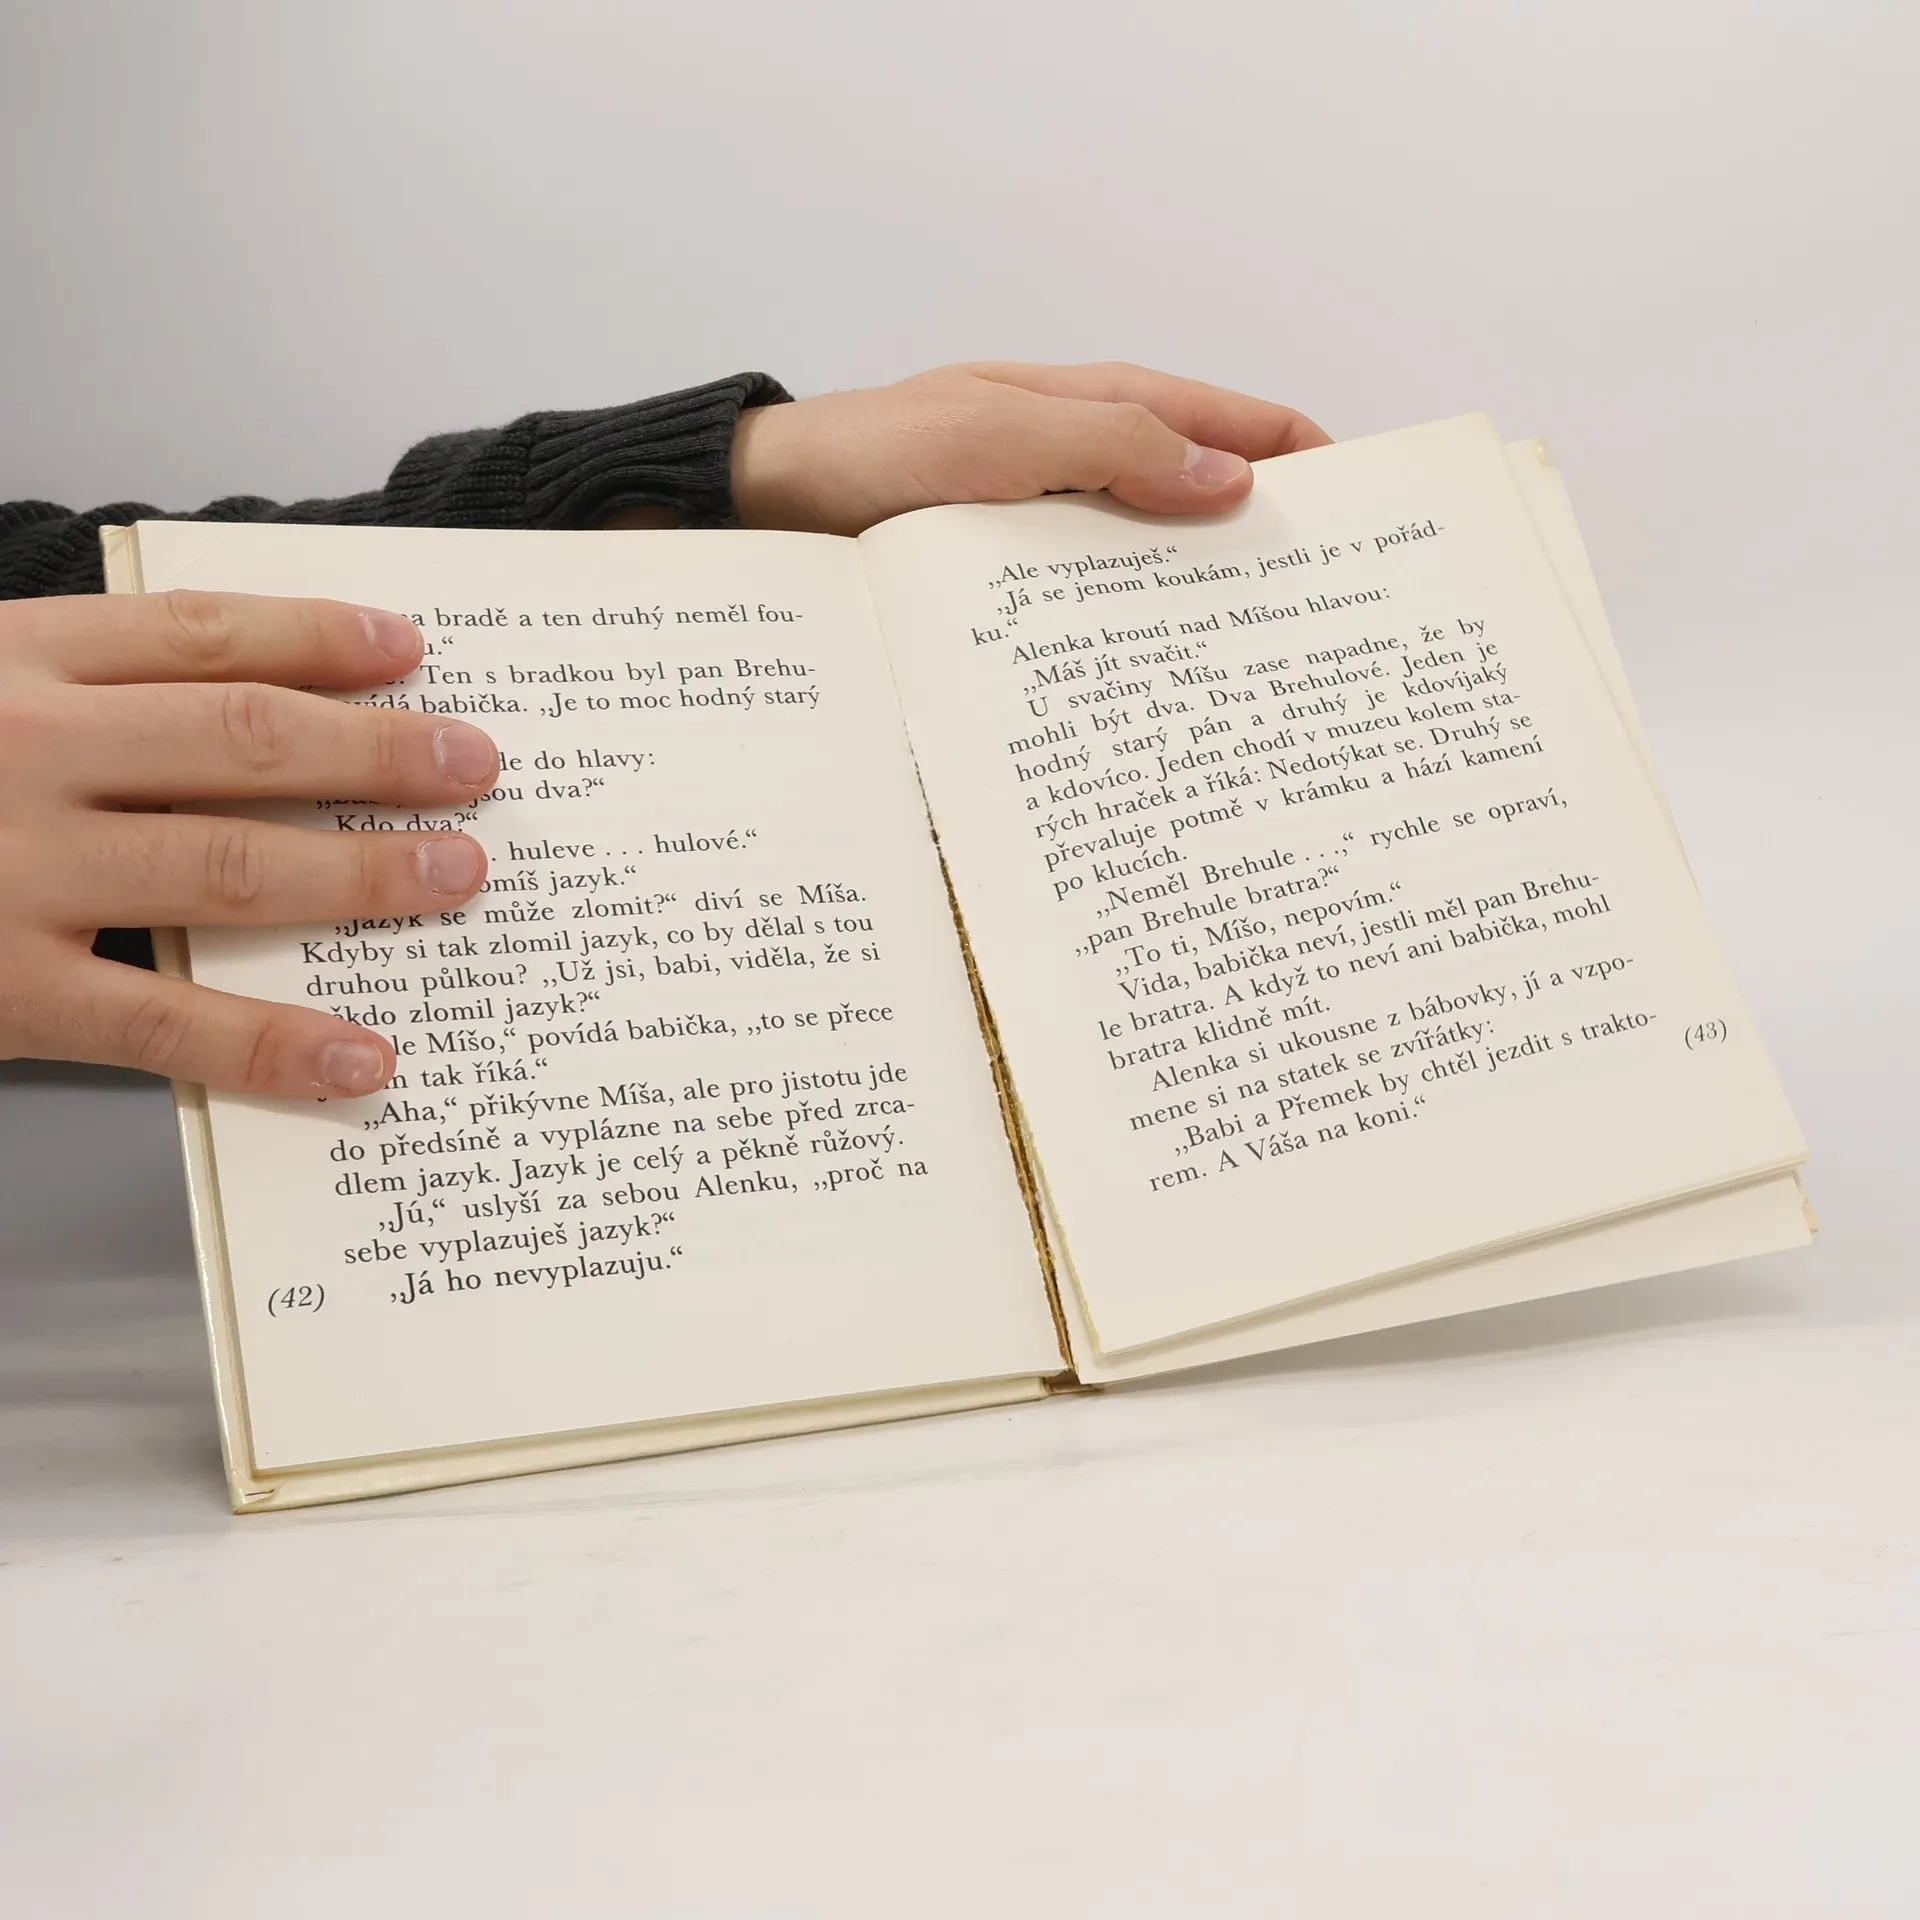 bradě a ten druhý neměl fou-
Ten s bradkou byl pan Brehu-
babička. „Je to moc hodný starý
do hlavy:
jsou dva?“
Kdo dva?“
. huleve . . . hulové.“
jazyk.“
„Jazyk se může zlomit?“ diví se Míša.
Kdyby si tak zlomil jazyk, co by dělal s tou
druhou půlkou? „Už jsi, babi, viděla, že si
zlomil jazyk?“
Míšo,“ povídá babička, „to se přece
tak říká.“
„Aha,“ přikývne Míša, ale pro jistotu jde
do předsíně a vyplázne na sebe před zrca-
dlem jazyk. Jazyk je celý a pěkně růžový.
„Jú,“ uslyší za sebou Alenku, „proč na
sebe vyplazuješ jazyk?“
„Já ho nevyplazuju.“
(42)
„Ale vyplazuješ.“
„Já se jenom koukám, jestli je v pořád-
ku.“
Alenka kroutí nad Míšou hlavou:
„Máš jít svačit.“
U svačiny Míšu zase napadne, že by
mohli být dva. Dva Brehulové. Jeden je
hodný starý pán a druhý je kdovíjaký
a kdovíco. Jeden chodí v muzeu kolem sta-
rých hraček a říká: Nedotýkat se. Druhý se
převaluje potmě v krámku a hází kamení
po klucích.
„Neměl Brehule . . .,“ rychle se opraví,
„pan Brehule bratra?“
„To ti, Míšo, nepovím.“
Vida, babička neví, jestli měl pan Brehu-
le bratra. A když to neví ani babička, mohl
bratra klidně mít.
Alenka si ukousne z bábovky, jí a vzpo-
mene si na statek se zvířátky:
„Babi a Přemek by chtěl jezdit s trakto-
rem. A Váša na koni.“
(43)